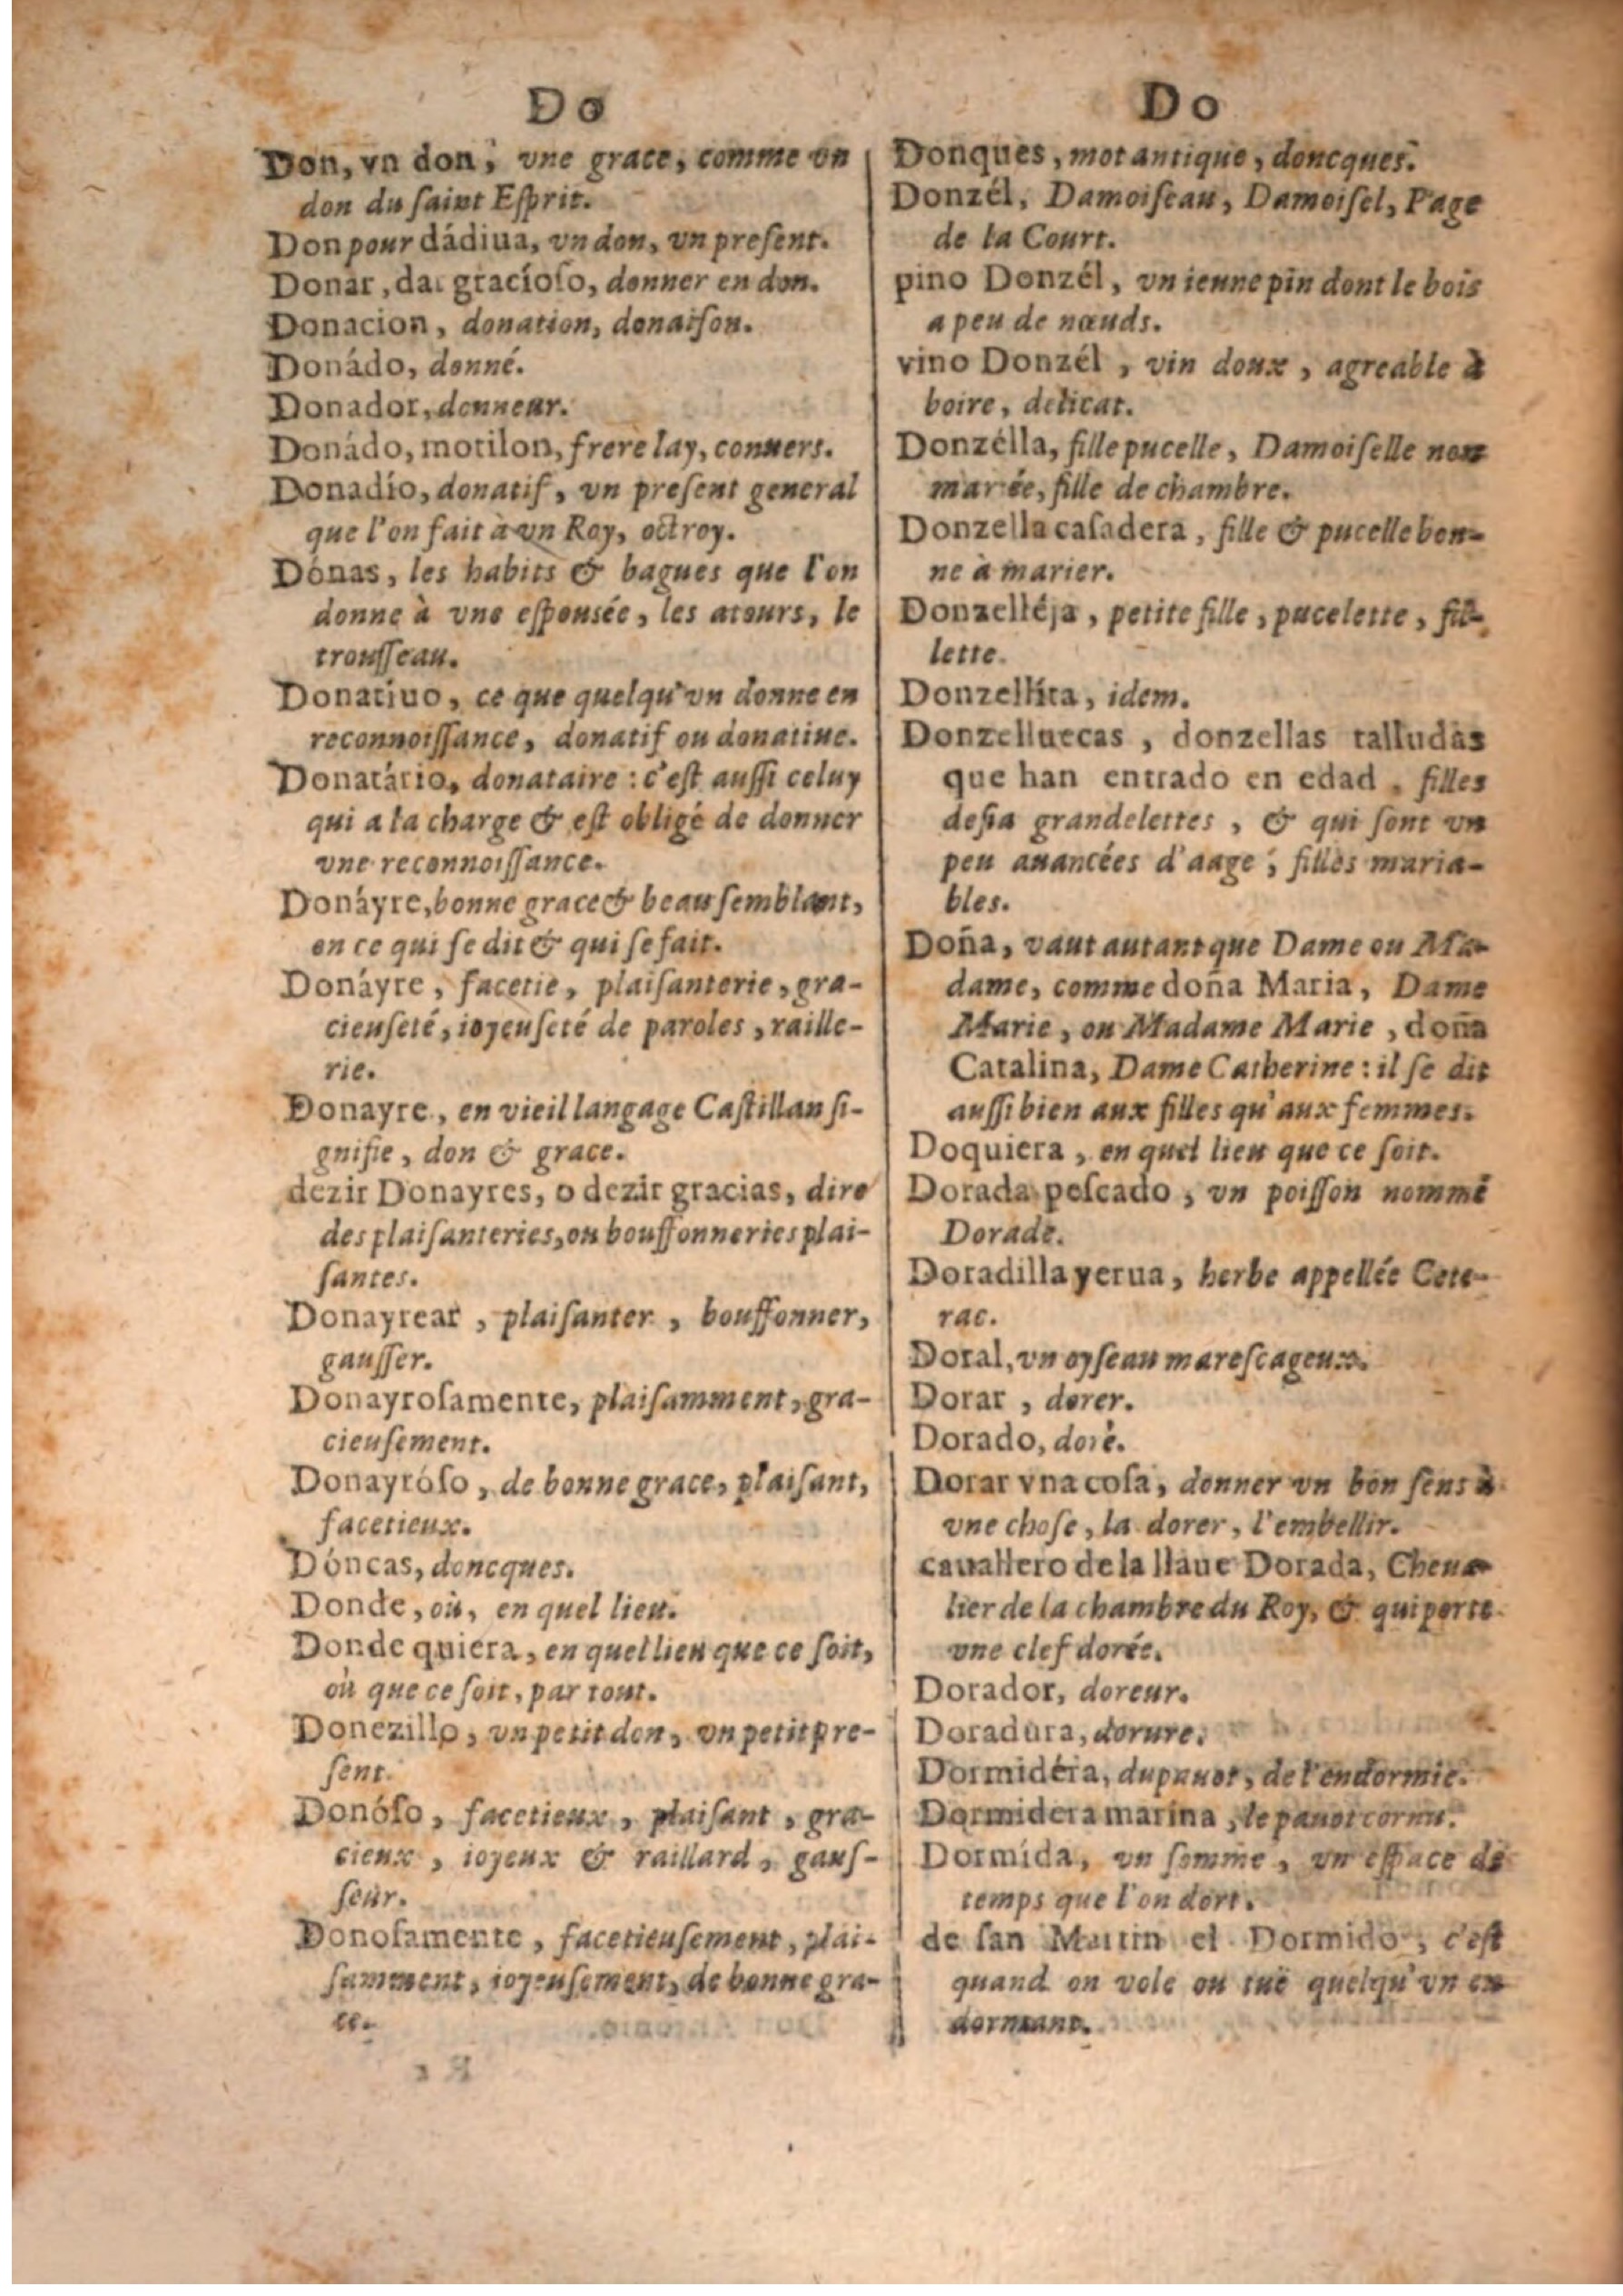 Do
Don, vn don, vne grace, comme vn
don du ſaint Eſprit.
Don pour dádiua, vn don, vn preſent.
Donar, dar gracíoſo, donner en don.
Donacion, donation, donaiſon.
Donádo, donné.
Donador, donneur.
Donádo, motilon, frere lay, conuers.
Donadío, donatif, vn preſent general
que l'on fait à vn Roy, octroy.
Dónas, les habits & bagues que l'on
donne à vne eſpouſée, les atours, le
trouſſeau.
Donatíuo, ce que quelqu'vn donne en
reconnoiſſance, donatif ou donatiue.
Donatário, donataire : c'eſt auſſi celuy
qui a la charge & eſt obligé de donner
vne reconnoiſſance.
Donáyre, bonne grace & beau ſemblant,
en ce qui ſe dit & qui ſe fait.
Donáyre, facetie, plaiſanterie, gra-
cieuſeté, ioyeuſeté de paroles, raille-
rie.
Donayre, en vieil langage Caſtillan ſi-
gnifie, don & grace.
dezir Donayres, o dezir gracias, dire
des plaiſanteries, ou bouffonneries plai-
ſantes.
Donayrear, plaiſanter, bouffonner,
gauſſer.
Donayroſamente, plaiſamment, gra-
cieuſement.
Donayróſo, de bonne grace, plaiſant,
facetieux.
Dóncas, doncques.
Donde, où, en quel lieu.
Donde quiera, en quel lieu que ce ſoit,
où que ce ſoit, par tout.
Donezillo, vn petit don, vn petit pre-
ſent.
Donóſo, facetieux, plaiſant, gra-
cieux, ioyeux & raillard, gauſ-
ſeur.
Donoſamente, facetieuſement, plai-
ſamment, ioyeuſement, de bonne gra-
ce.
Do
Donques, mot antique, doncques.
Donzél, Damoiſeau, Damoiſel, Page
de la Court.
pino Donzél, vn ieune pin dont le bois
a peu de nœuds.
vino Donzél, vin doux, agreable à
boire, delicat.
Donzélla, fille pucelle, Damoiſelle non
mariée, fille de chambre.
Donzella caſadera, fille & pucelle bon-
ne à marier.
Donzelléja, petite fille, pucelette, fil-
lette.
Donzellíta, idem.
Donzelluecas, donzellas talludas
que han entrado en edad, filles
deſia grandelettes, & qui ſont vn
peu auancées d'aage, filles maria-
bles.
Doña, vaut autant que Dame ou Ma-
dame, comme doña Maria, Dame
Marie, ou Madame Marie, doña
Catalina, Dame Catherine : il ſe dit
auſſi bien aux filles qu'aux femmes.
Doquiera, en quel lieu que ce ſoit.
Dorada peſcado, vn poiſſon nommé
Dorade.
Doradilla yerua, herbe appellée Cete-
rac.
Doral, vn oyſeau mareſcageux.
Dorar, dorer.
Dorado, doré.
Dorar vna coſa, donner vn bon ſens à
vne choſe, la dorer, l'embellir.
cauallero de la llaue Dorada, Cheua-
lier de la chambre du Roy, & qui porte
vne clef dorée.
Dorador, doreur.
Doradura, dorure.
Dormidéra, du pauot, de l'endormie.
Dormidera marina, le pauot cornu.
Dormída, vn ſomme, vn eſpace de
temps que l'on dort.
de ſan Martin el Dormido, c'eſt
quand on vole ou tuë quelqu'vn en
dormant.